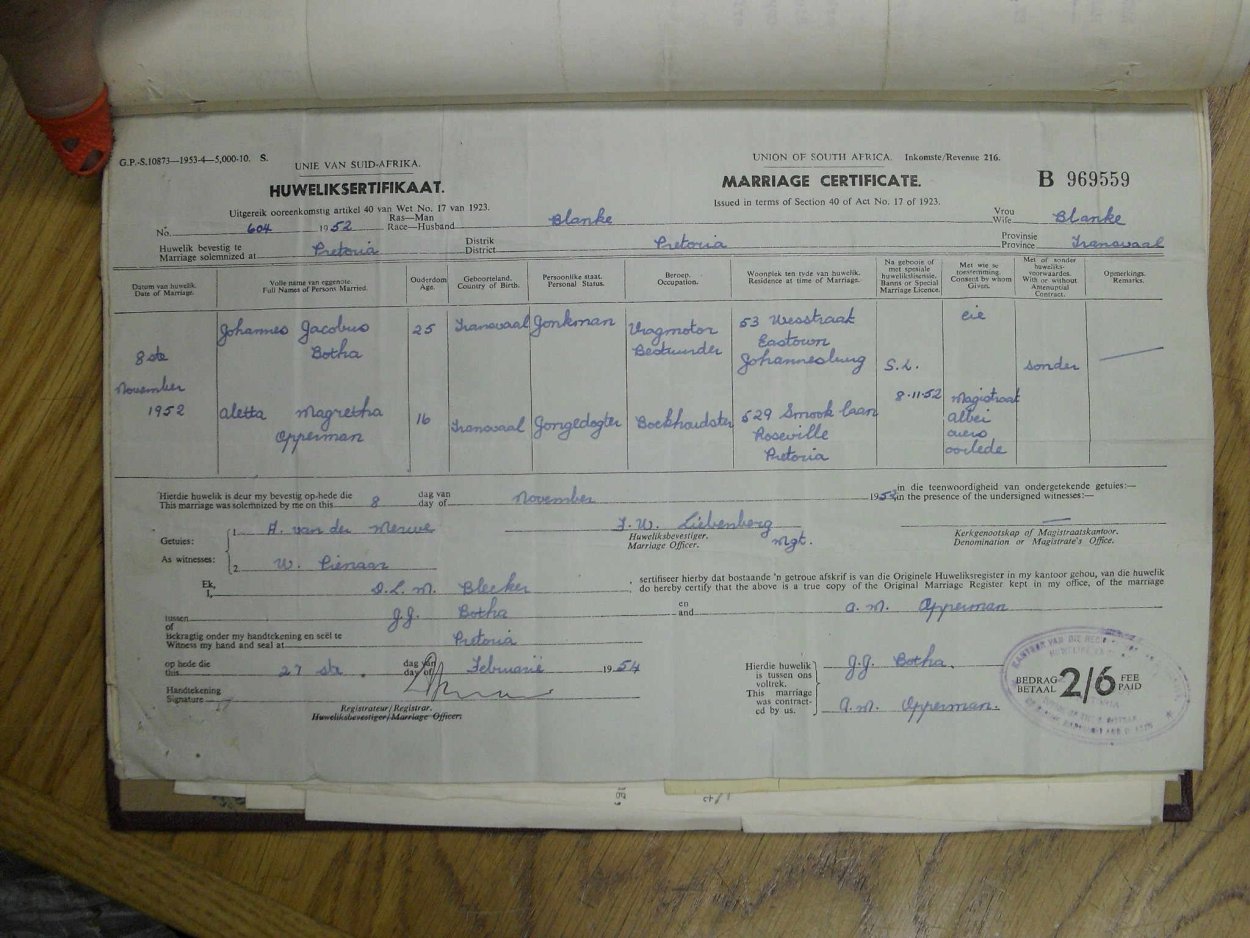 G.P.-S.10873—1953-4—5,000-10. S.
UNIE VAN SUID-AFRIKA.
UNION OF SOUTH AFRICA. Inkomste/Revenue 216.
HUWELIKSERTIFIKAAT.
MARRIAGE CERTIFICATE.
B 969559
Uitgereik ooreenkomstig artikel 40 van Wet No. 17 van 1923.
Issued in terms of Section 40 of Act No. 17 of 1923.
No. 604 1952 Ras—Man Race—Husband Blanke Vrou Wife Blanke
Huwelik bevestig te Marriage solemnized at Pretoria Distrik District Pretoria Provinsie Province Transvaal
Datum van huwelik. Date of Marriage.
Volle name van eggenote. Full Names of Persons Married.
Ouderdom Age.
Geboorteland. Country of Birth.
Persoonlike staat. Personal Status.
Beroep. Occupation.
Woonplek ten tyde van huwelik. Residence at time of Marriage.
Na gebooie of met spesiale huwelikslisensie. Banns or Special Marriage Licence.
Met wie se toestemming. Consent by whom Given.
Met of sonder huweliks-voorwaardes. With or without Antenuptial Contract.
Opmerkings. Remarks.
8 ste November 1952
Johannes Jacobus Botha
25
Transvaal
Jonkman
Vragmotor Bestuurder
53 Wesstraat Eastown Johannesburg
eie
S.L. 8-11-52
sonder
Aletta Magretha Opperman
16
Transvaal
Jongedogter
Boekhoudster
529 Smook laan Roseville Pretoria
Magistraat Albei ouers oorlede
Hierdie huwelik is deur my bevestig op-hede die 8 dag van November 1952 in die teenwoordigheid van ondergetekende getuies:—
This marriage was solemnized by me on this day of in the presence of the undersigned witnesses:—
Getuies: As witnesses:
1. H. van der Merwe
2. W. Pienaar
J. W. Liebenberg
Huweliksbevestiger. Marriage Officer. Mgt.
Kerkgenootskap of Magistraatskantoor.
Denomination or Magistrate's Office.
Ek, I, D.L.M. Blecker, sertifiseer hierby dat bostaande 'n getroue afskrif is van die Originele Huweliksregister in my kantoor gehou, van die huwelik
do hereby certify that the above is a true copy of the Original Marriage Register kept in my office, of the marriage
tussen of J.J. Botha en and A. M. Opperman
Bekragtig onder my handtekening en seël te
Witness my hand and seal at Pretoria
op hede die this 27 ste dag van day of Februarie 1954
Handtekening Signature
Registrateur/Registrar.
Huweliksbevestiger/Marriage Officer.
Hierdie huwelik is tussen ons voltrek.
This marriage was contracted by us.
J.J. Botha.
A.M. Opperman.
BEDRAG BETAAL 2/6 FEE PAID